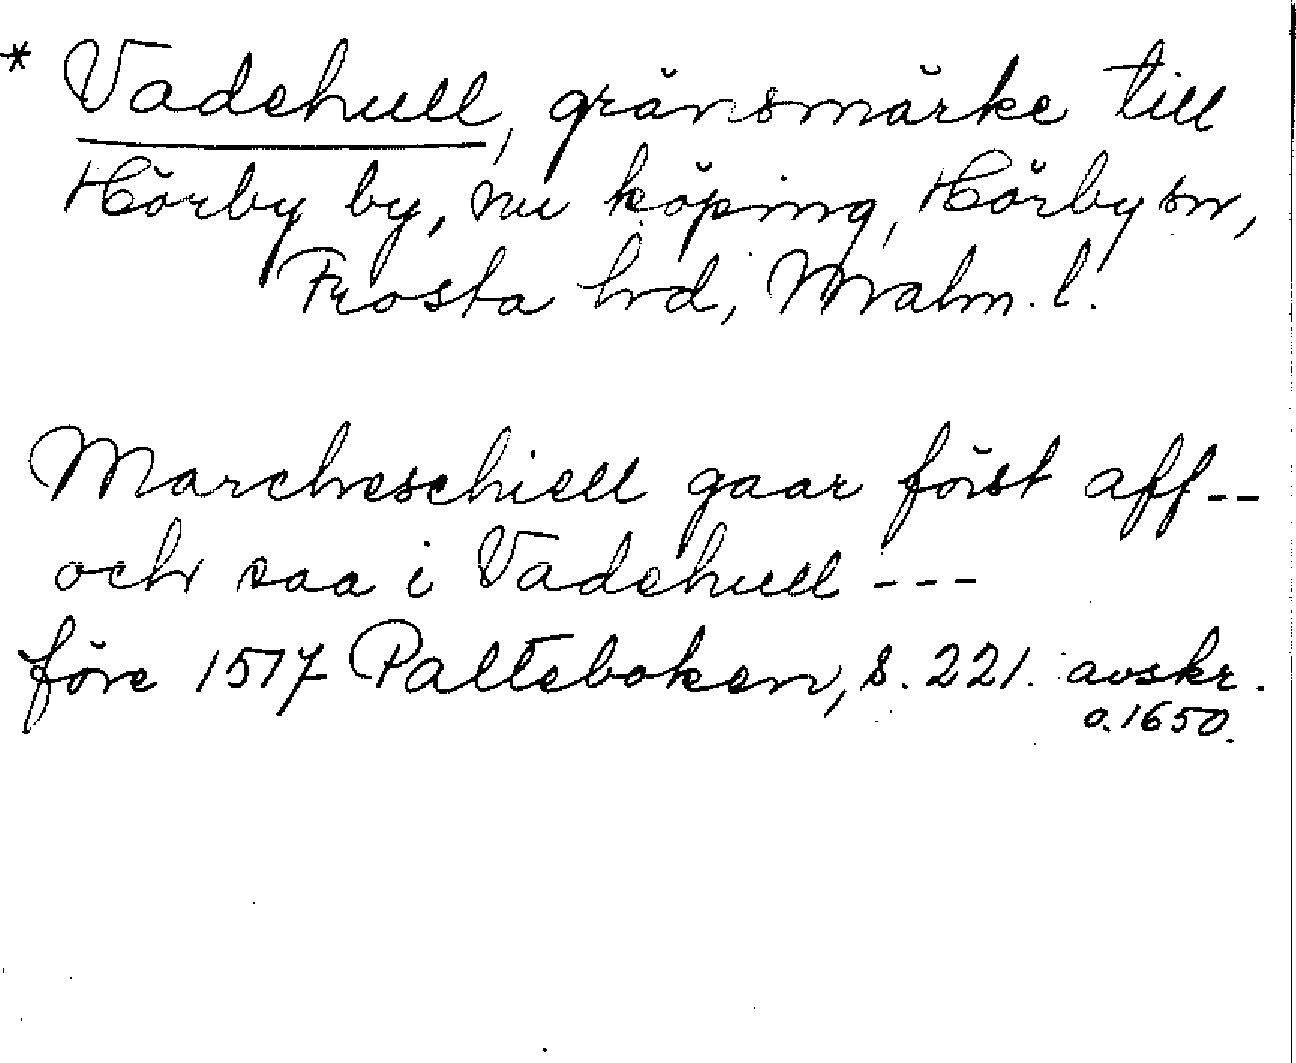 * Vadehull, gränsmärke till
Hörby by, nu köping, Hörby sn,
Frosta hd, Malm. l.
Marcheschiell gaar först aff--
och saa i Vadehull ---
före 1517 Palteboken, s. 221. avskr.
o. 1650.